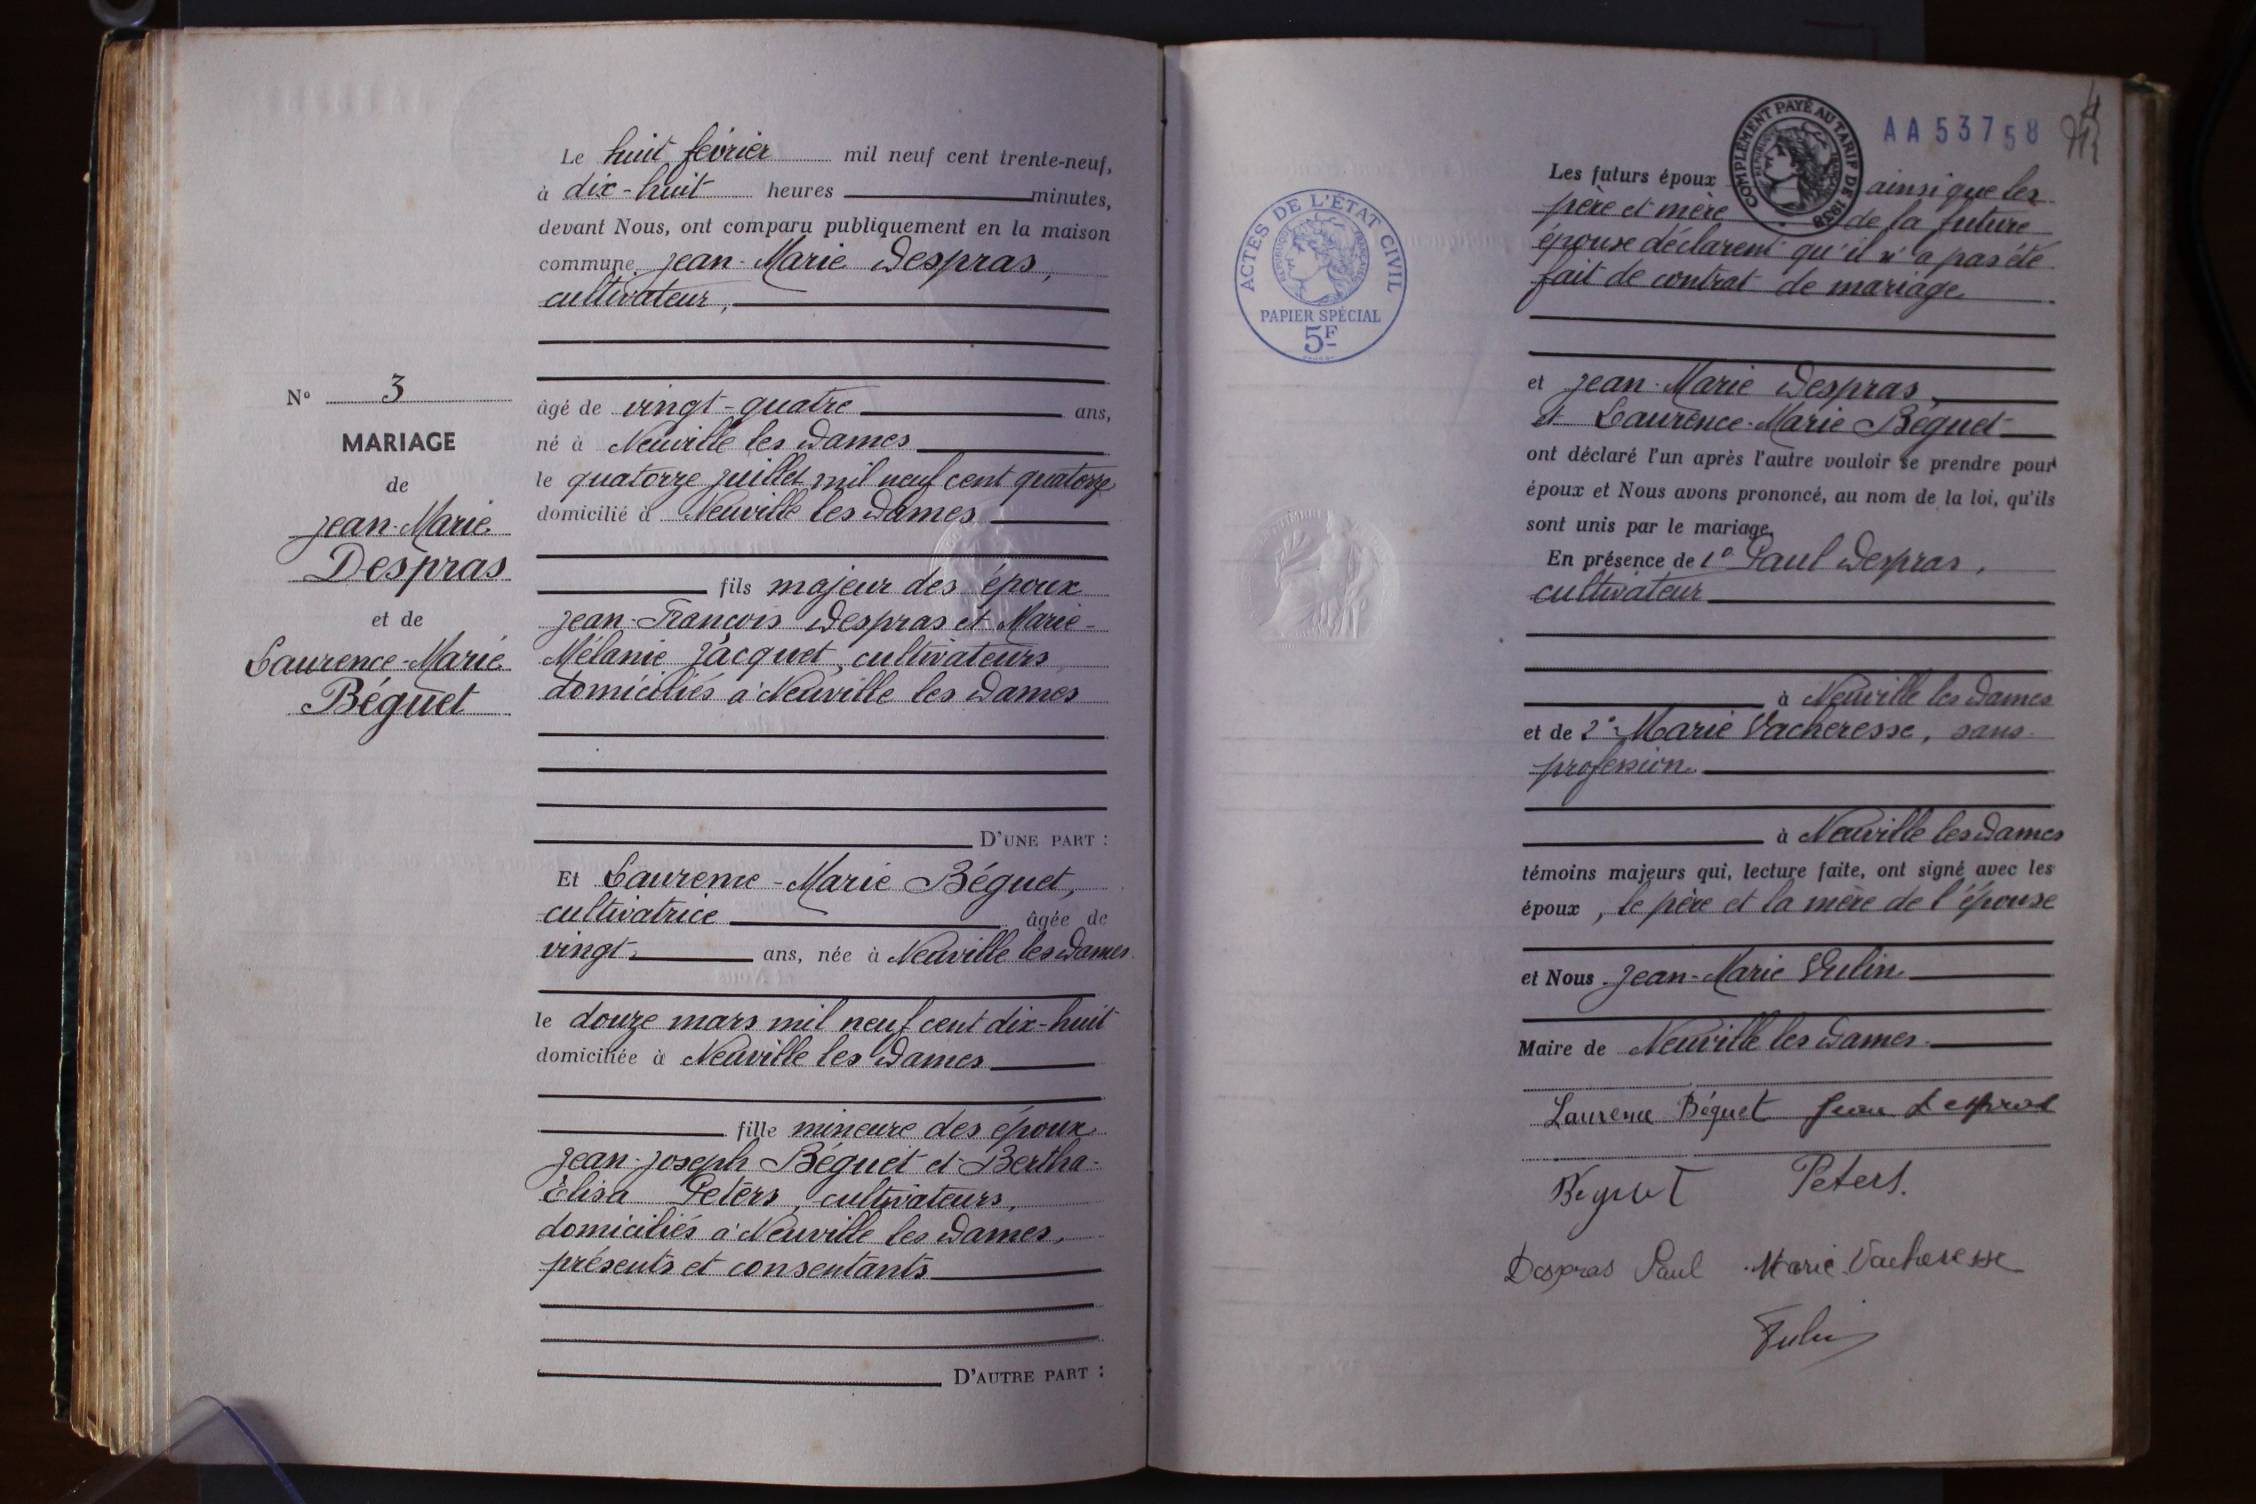 Le huit février mil neuf cent trente-neuf,
à dix-huit heures minutes,
devant Nous, ont comparu publiquement en la maison
commune Jean-Marie Despras,
cultivateur,
âgé de vingt-quatre ans,
né à Neuville les Dames
le quatorze juillet mil neuf cent quatorze
domicilié à Neuville les Dames
fils majeur des époux
Jean-François Despras et Marie-
Mélanie Jacquet, cultivateurs
domiciliés à Neuville les Dames
D'UNE PART :
Et Laurence-Marie Béguet,
cultivatrice âgée de
vingt ans, née à Neuville les Dames
le douze mars mil neuf cent dix-huit
domiciliée à Neuville les Dames
fille mineure des époux
Jean-Joseph Béguet et Bertha-
Élisa Peters, cultivateurs,
domiciliés à Neuville les Dames,
présents et consentants
D'AUTRE PART :
No 3
MARIAGE
de
Jean-Marie
Despras
et de
Laurence-Marie
Béguet
COMPLÉMENT PAYÉ AU TARIF DE 1938
AA53758
ACTES DE L'ÉTAT CIVIL
RÉPUBLIQUE FRANÇAISE
PAPIER SPÉCIAL
5F
Les futurs époux ainsi que les
père et mère de la future
épouse déclarent qu'il n'a pas été
fait de contrat de mariage
et Jean-Marie Despras,
et Laurence-Marie Béguet
ont déclaré l'un après l'autre vouloir se prendre pour
époux et Nous avons prononcé, au nom de la loi, qu'ils
sont unis par le mariage.
En présence de 1o Paul Despras,
cultivateur
à Neuville les Dames
et de 2o Marie Vacheresse, sans
profession
à Neuville les Dames
témoins majeurs qui, lecture faite, ont signé avec les
époux, le père et la mère de l'épouse
et Nous Jean-Marie Vulin
Maire de Neuville les Dames
Laurence Béguet Jean Despras
Béguet Peters.
Despras Paul Marie Vacheresse
Vulin